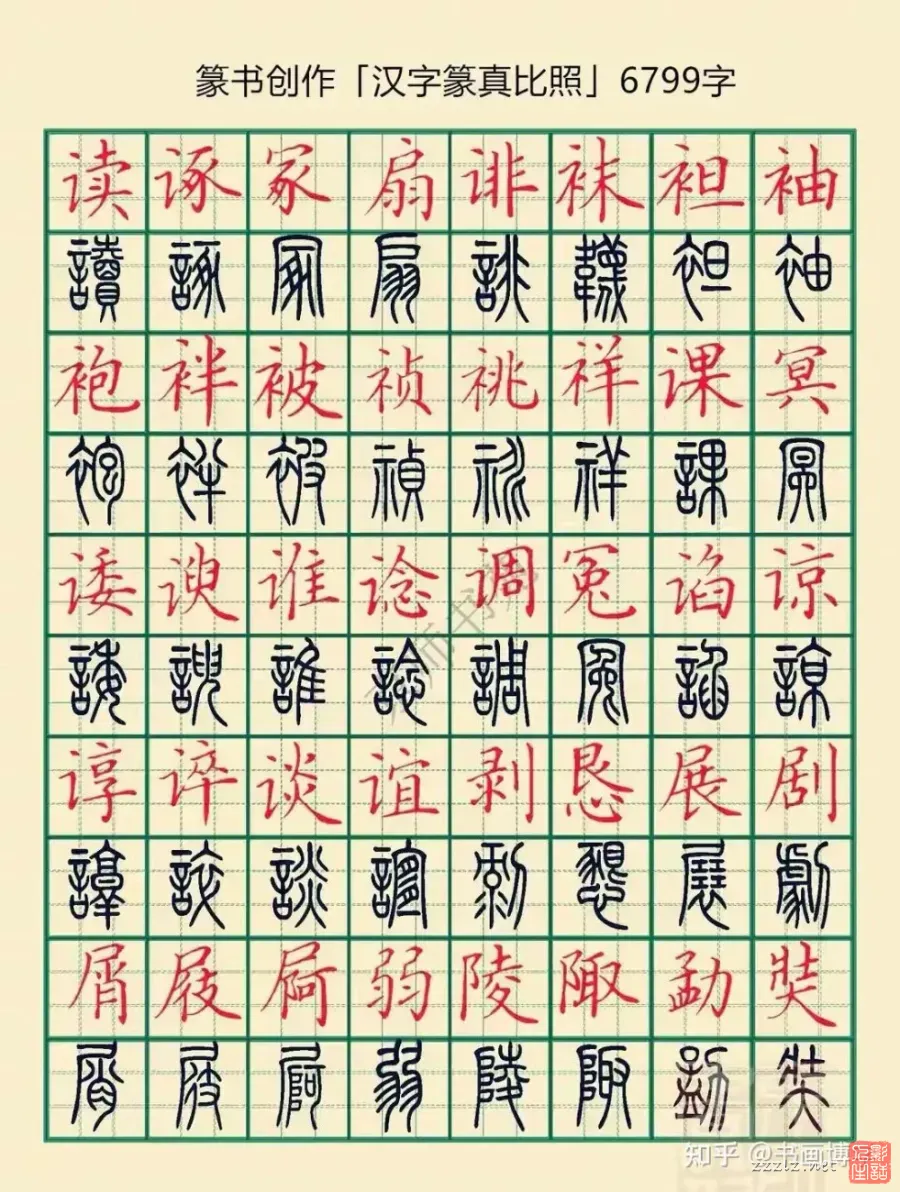 篆书创作「汉字篆真比照」6799字
读诼冢扇诽袜袒袖
讀諑冢扇誹韤袒袖
袍袢被祯祧祥课冥
袍袢被禎祧祥課冥
诿谀谁谂调冤谄谅
諉諛誰諗調冤諂諒
谆谇谈谊剥恳展剧
諄誶談誼剥懇展劇
屑屐屙弱陵陬勐奘
屑屐屙弱陵陬勐奘
知乎 @书画博
zzzlz.net